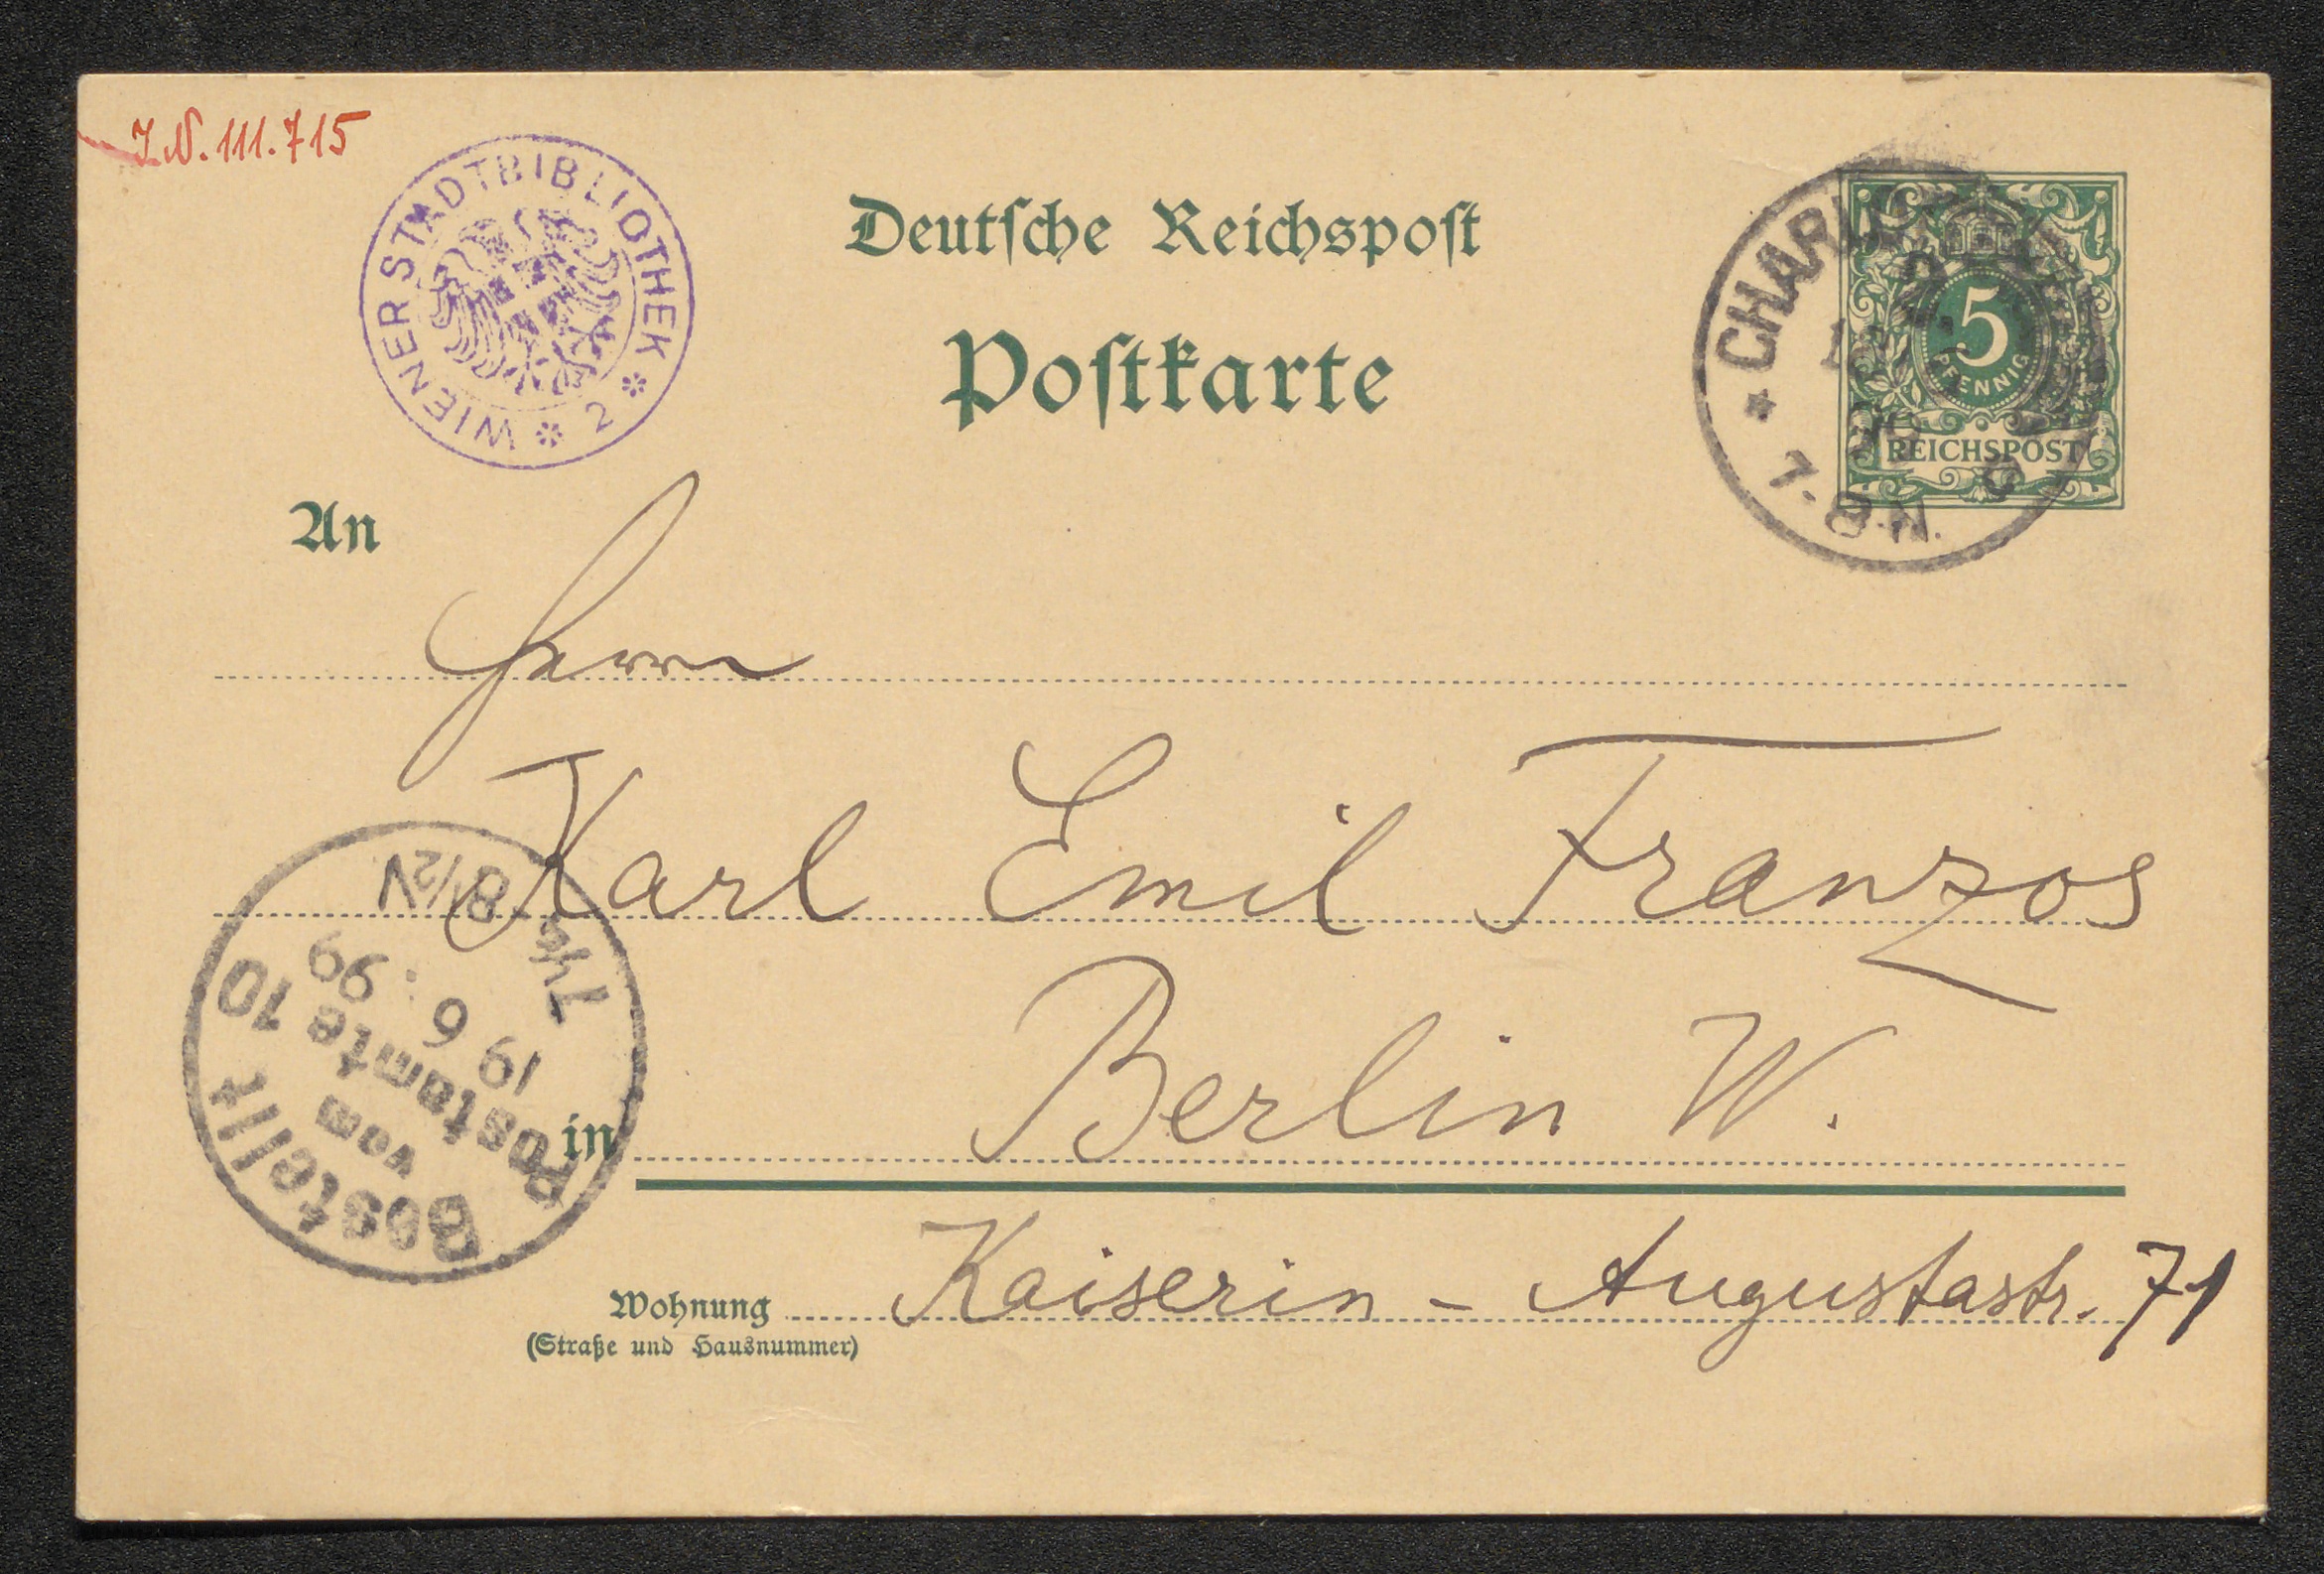 J.N. 111.715
WIENER STADTBIBLIOTHEK * 2 *
Deutsche Reichspost
Postkarte
5
PFENNIG
REICHSPOST
* CHARL
7-8 N.
An
Herrn
Karl Emil Franzos
in Berlin W.
Wohnung Kaiserin-Augustastr. 71
(Straße und Hausnummer)
Bestellt
vom
Postamte 10
19 6 . 99
7½-8½V